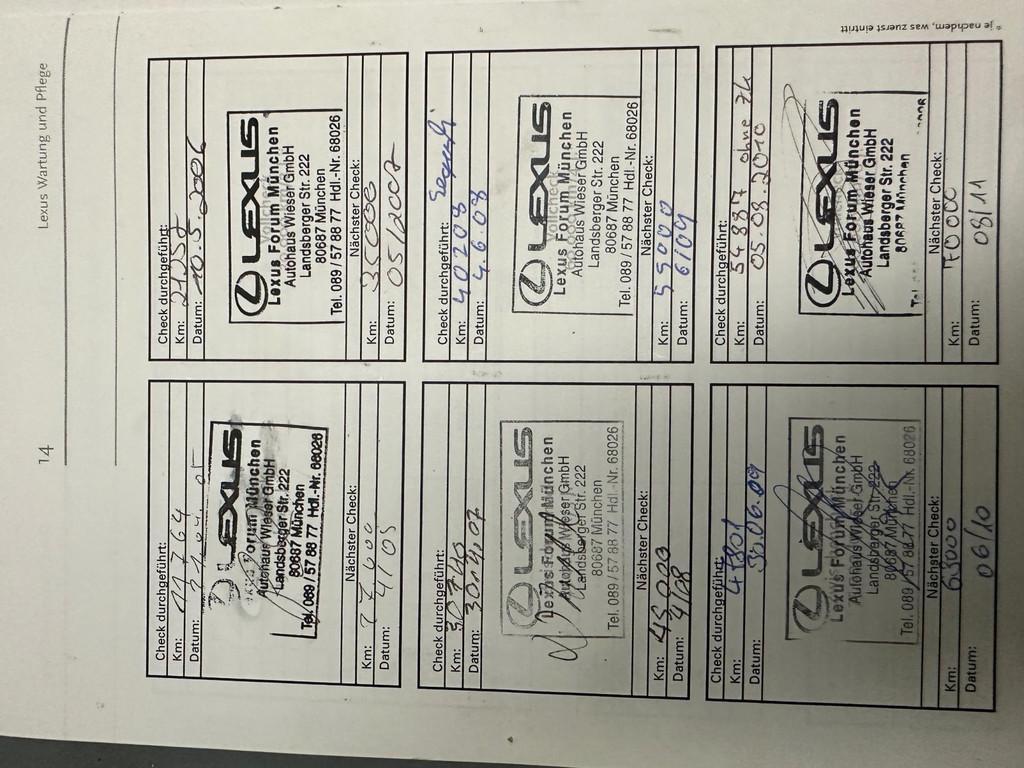 14
Lexus Wartung und Pflege
Check durchgeführt:
Km: 11764
Datum: 21.04.05
LEXUS
Lexus Forum München
Autohaus Wieser GmbH
Landsberger Str. 222
80687 München
Tel. 089 / 57 88 77 Hdl.-Nr. 68026
Nächster Check:
Km:
Datum:
Check durchgeführt:
Km:
Datum: 10.5.2006
LEXUS
Lexus Forum München
Autohaus Wieser GmbH
Landsberger Str. 222
80687 München
Tel. 089 / 57 88 77 Hdl.-Nr. 68026
Nächster Check:
Km: 35000
Datum: 05/2007
Check durchgeführt:
Km: 30745
Datum: 30.4.07
LEXUS
Lexus Forum München
Autohaus Wieser GmbH
Landsberger Str. 222
80687 München
Tel. 089 / 57 88 77 Hdl.-Nr. 68026
Nächster Check:
Km: 45000
Datum: 4/08
Check durchgeführt:
Km: 40208
Datum: 4.6.08
LEXUS
Lexus Forum München
Autohaus Wieser GmbH
Landsberger Str. 222
80687 München
Tel. 089 / 57 88 77 Hdl.-Nr. 68026
Nächster Check:
Km: 55000
Datum: 6/09
Check durchgeführt:
Km: 47801
Datum: 30.06.09
LEXUS
Lexus Forum München
Autohaus Wieser GmbH
Landsberger Str. 222
80687 München
Tel. 089 / 57 88 77 Hdl.-Nr. 68026
Nächster Check:
Km: 63000
Datum: 06/10
Check durchgeführt:
Km: 54887 ohne
Datum: 05.08.2010
LEXUS
Lexus Forum München
Autohaus Wieser GmbH
Landsberger Str. 222
80687 München
Tel.
Nächster Check:
Km: 70000
Datum: 08/11
* je nachdem, was zuerst eintritt